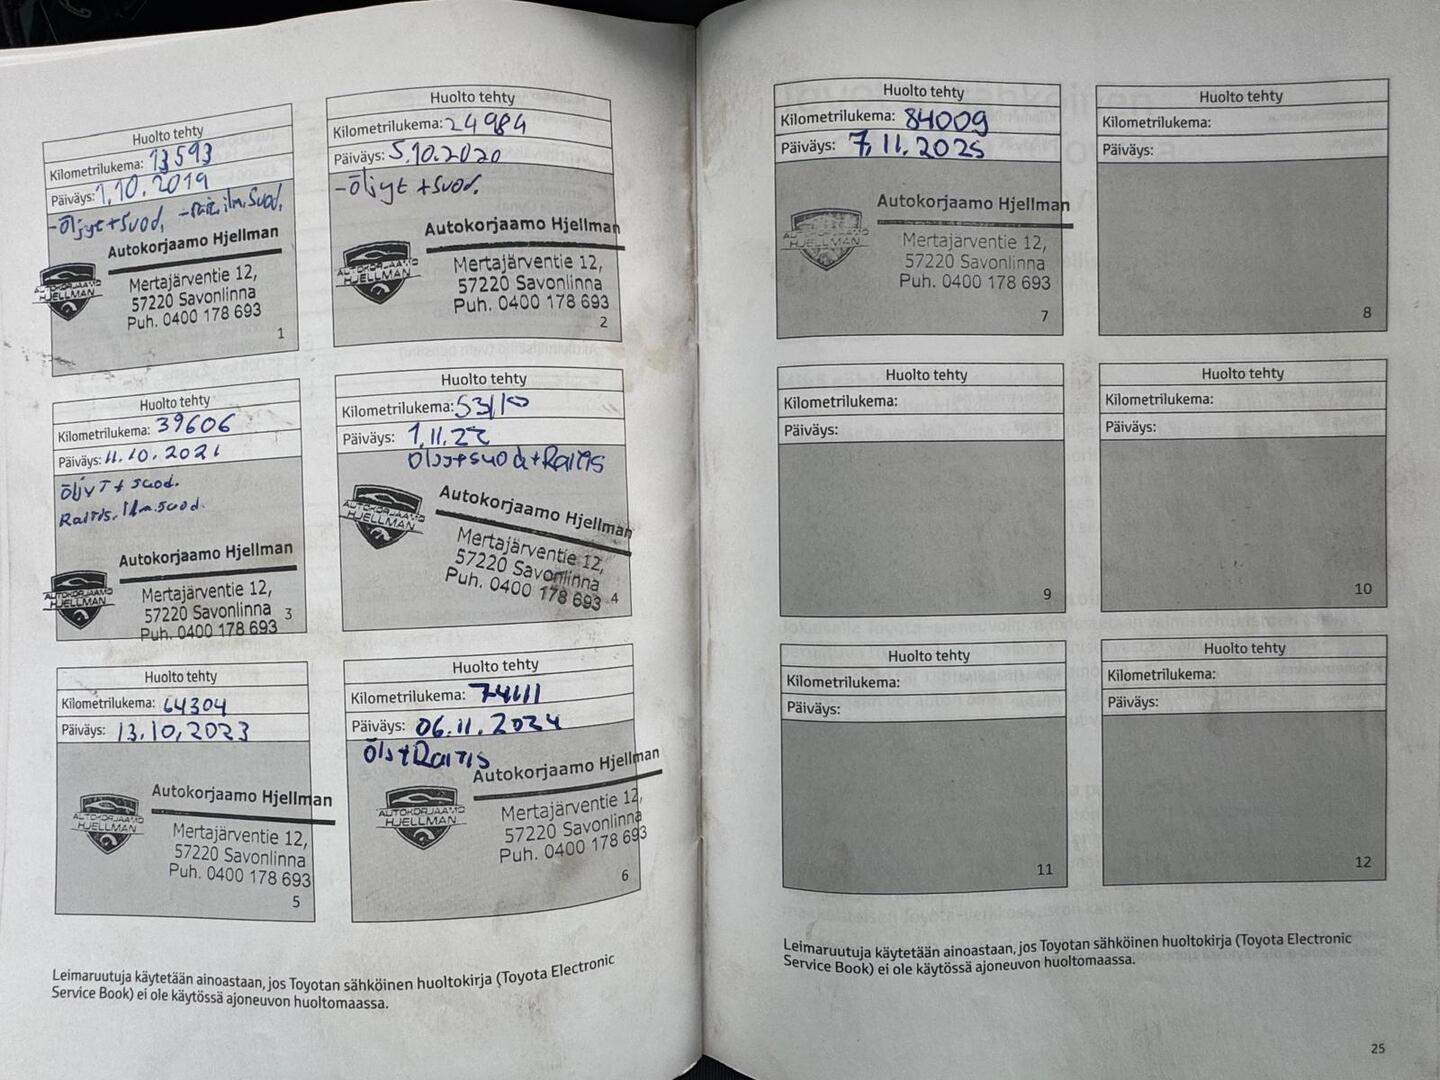 Huolto tehty
Kilometrilukema: 13593
Päiväys: 1.10.2019
-öljyt+suod, -rait.ilm.suod,
Autokorjaamo Hjellman
AUTOKORJAAMO
HJELLMAN
Mertajärventie 12,
57220 Savonlinna
Puh. 0400 178 693
1
Huolto tehty
Kilometrilukema: 24984
Päiväys: 5.10.2020
-öljyt +suod.
Autokorjaamo Hjellman
AUTOKORJAAMO
HJELLMAN
Mertajärventie 12,
57220 Savonlinna
Puh. 0400 178 693
2
Huolto tehty
Kilometrilukema: 39606
Päiväys: 11.10.2021
öljyT + suod.
Raitis. Ilm.suod.
Autokorjaamo Hjellman
AUTOKORJAAMO
HJELLMAN
Mertajärventie 12,
57220 Savonlinna
Puh. 0400 178 693
3
Huolto tehty
Kilometrilukema: 53110
Päiväys: 1.11.22
+Raitis
Autokorjaamo Hjellman
AUTOKORJAAMO
HJELLMAN
Mertajärventie 12,
57220 Savonlinna
Puh. 0400 178 693
4
Huolto tehty
Kilometrilukema: 64304
Päiväys: 13.10.2023
Autokorjaamo Hjellman
AUTOKORJAAMO
HJELLMAN
Mertajärventie 12,
57220 Savonlinna
Puh. 0400 178 693
5
Huolto tehty
Kilometrilukema: 74111
Päiväys: 06.11.2024
Ölj+Raitis
Autokorjaamo Hjellman
AUTOKORJAAMO
HJELLMAN
Mertajärventie 12,
57220 Savonlinna
Puh. 0400 178 693
6
Leimaruutuja käytetään ainoastaan, jos Toyotan sähköinen huoltokirja (Toyota Electronic
Service Book) ei ole käytössä ajoneuvon huoltomaassa.
Huolto tehty
Kilometrilukema: 84009
Päiväys: 7.11.2025
Autokorjaamo Hjellman
AUTOKORJAAMO
HJELLMAN
Mertajärventie 12,
57220 Savonlinna
Puh. 0400 178 693
7
Huolto tehty
Kilometrilukema:
Päiväys:
8
Huolto tehty
Kilometrilukema:
Päiväys:
9
Huolto tehty
Kilometrilukema:
Päiväys:
10
Huolto tehty
Kilometrilukema:
Päiväys:
11
Huolto tehty
Kilometrilukema:
Päiväys:
12
Leimaruutuja käytetään ainoastaan, jos Toyotan sähköinen huoltokirja (Toyota Electronic
Service Book) ei ole käytössä ajoneuvon huoltomaassa.
25